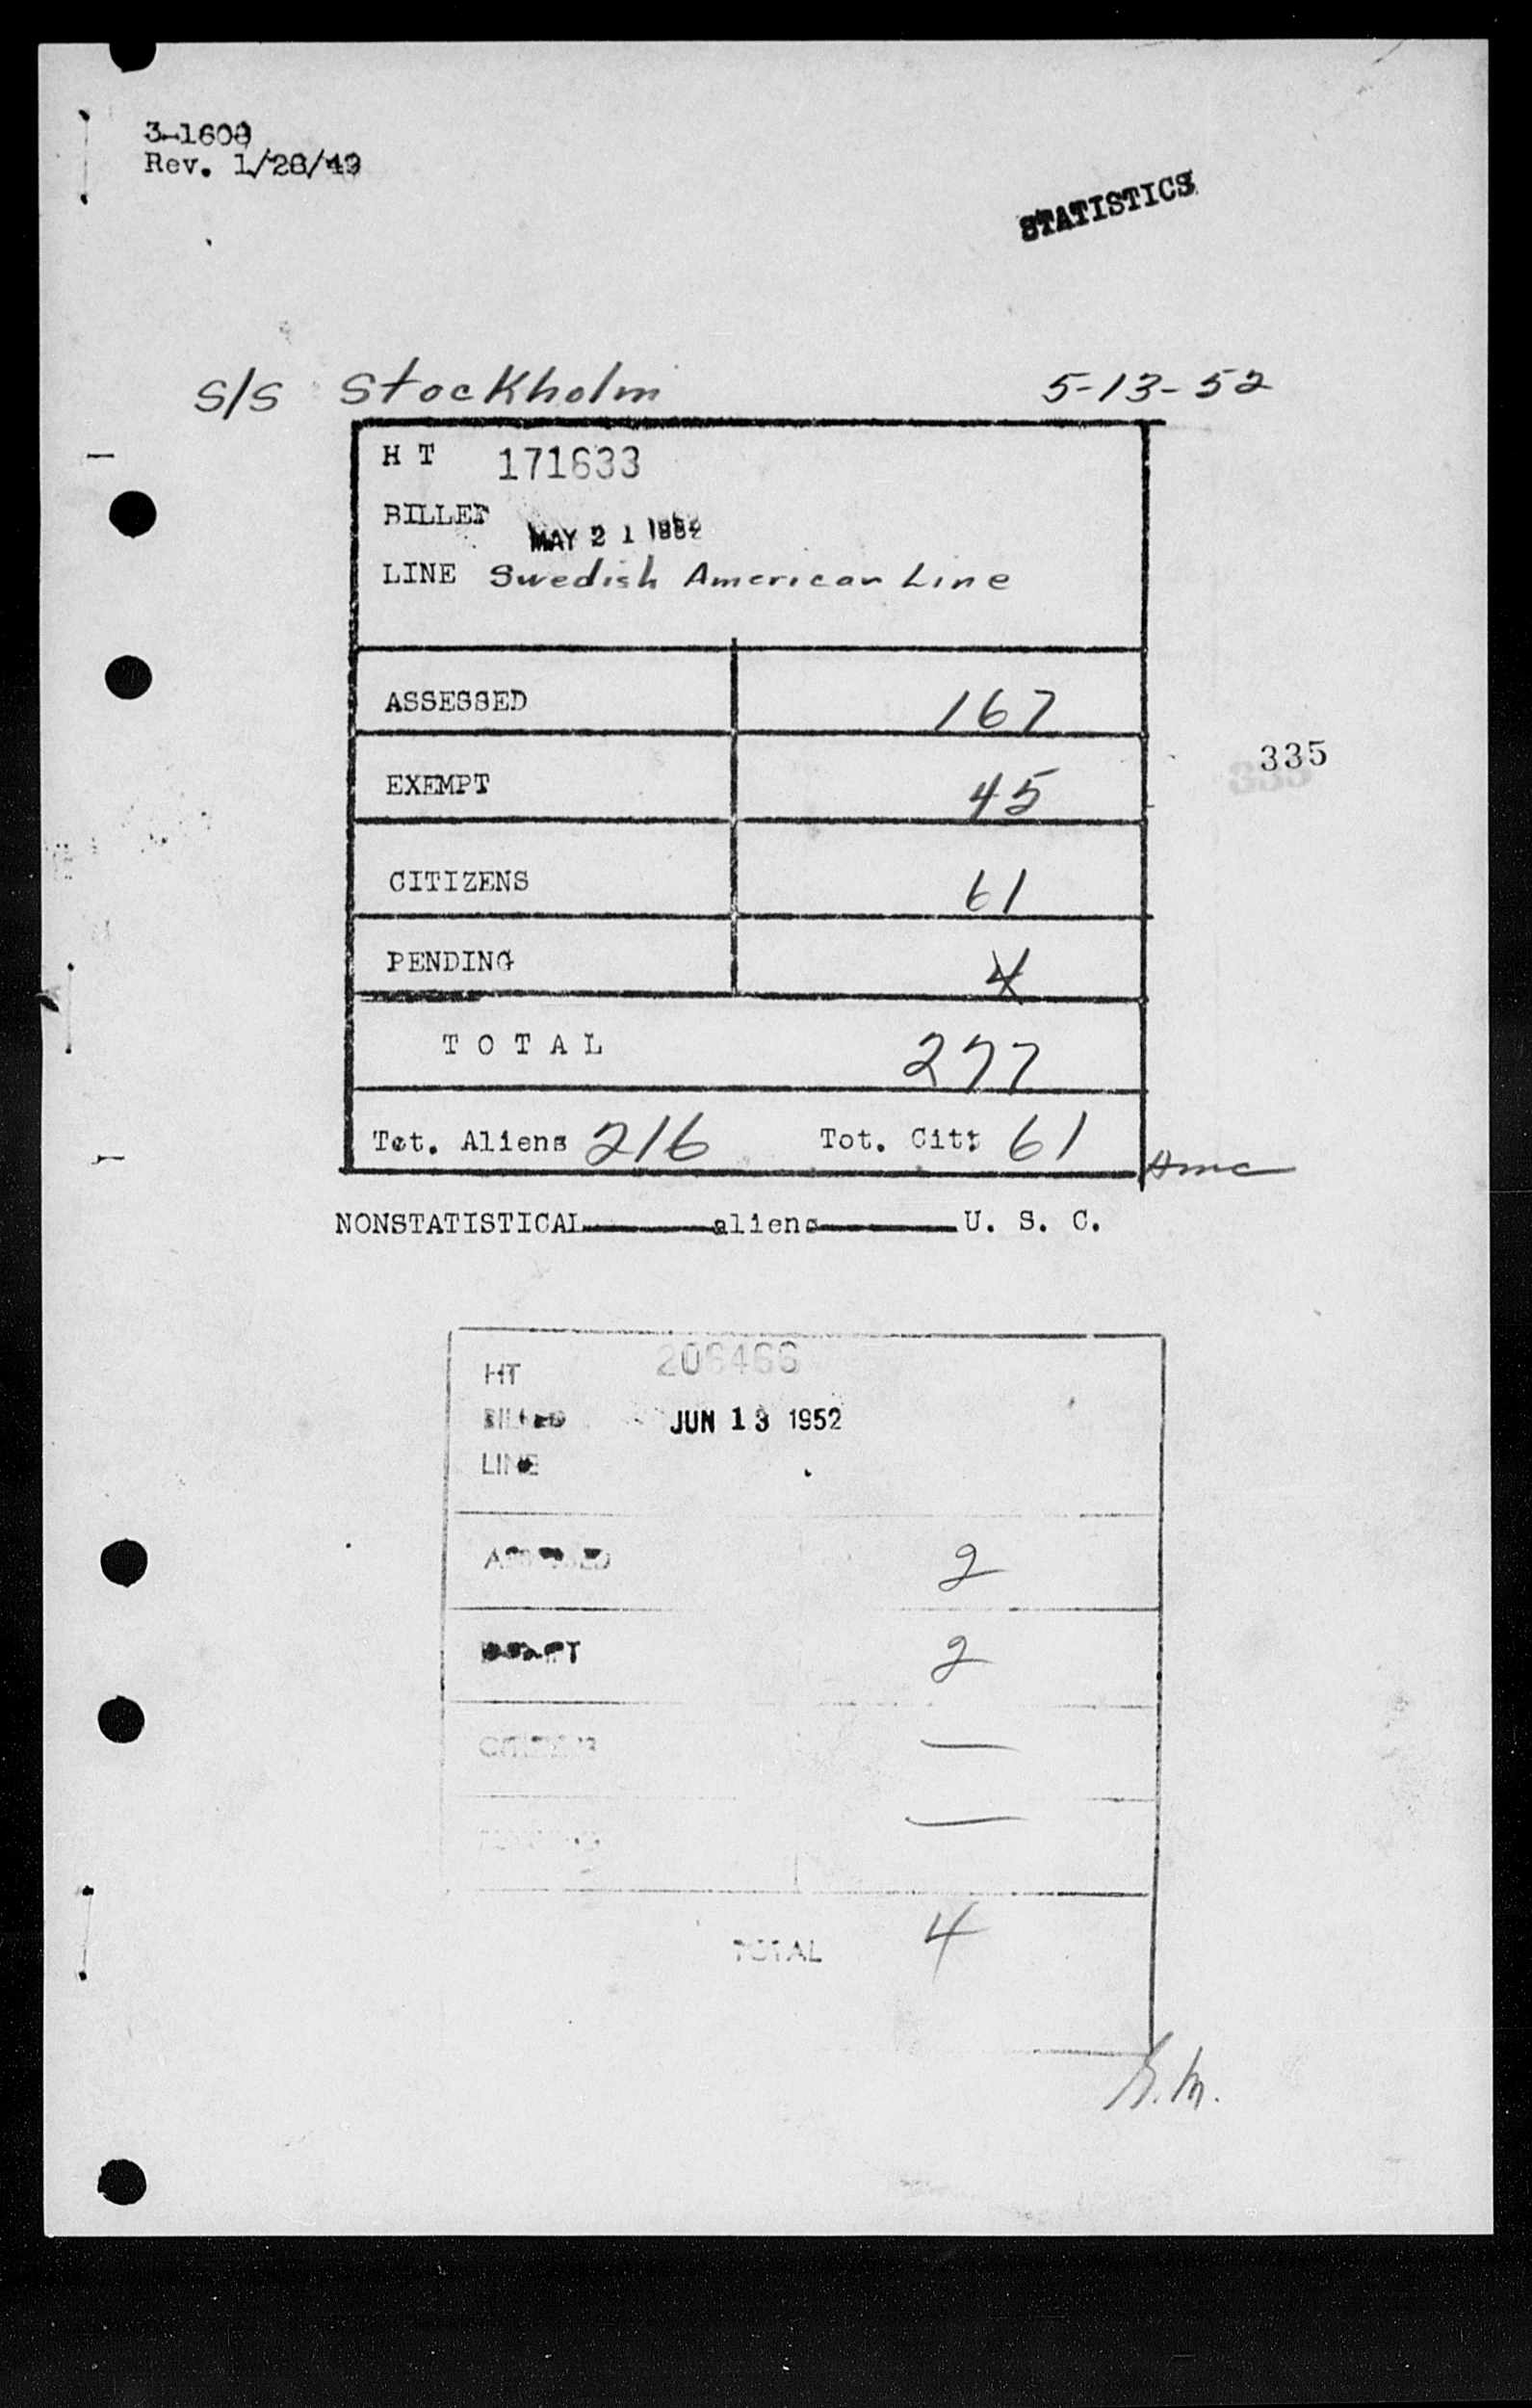 3-1608
Rev. 1/28/49
STATISTICS
S/S Stockholm 5-13-52
H T 171633
BILLED MAY 21 1952
LINE Swedish American Line
ASSESSED 167
335
EXEMPT 45
CITIZENS 61
PENDING 4
TOTAL 277
Tot. Aliens 216 Tot. Cit: 61
NONSTATISTICAL aliens U. S. C.
HT 206466
BILLED JUN 13 1952
LINE
ASSESSED 2
EXEMPT 2
CITIZENS —
PENDING —
TOTAL 4